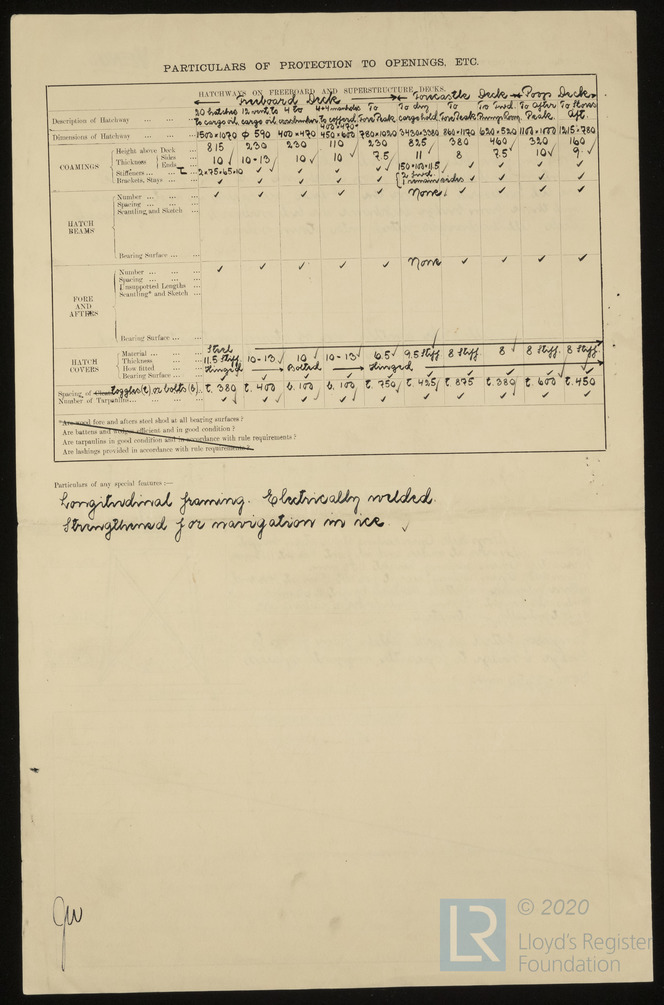 PARTICULARS OF PROTECTION TO OPENINGS, ETC.
HATCHWAYS ON FREEBOARD AND SUPERSTRUCTURE DECKS.
Freeboard Deck Forecastle Deck Poop Deck
20 hatches 12 4 to 4+4 manholes To To dry To To Fwd. To After To Stores
Description of Hatchway ... ... to cargo oil cargo oil to cofferd. Fore Peak cargo hold Fore Peak Pump Room Peak Aft.
400×470
Dimensions of Hatchway ... ... 1500×1070 Φ 590 400×470 450×600 780×1020 3430×3380 860×1170 620×520 1100×1000 1215×780
COAMINGS
Height above Deck ... 815 230 230 110 230 825 380 460 320 160
Thickness Sides ... Ends ... 10 10-13 10 10 7.5 11 8 7.5 10 9
Stiffeners ... 2×75×65×10 ✓ ✓ ✓ ✓ 150×100×11.5 ✓ ✓ ✓ ✓
Brackets, Stays ... ✓ ✓ ✓ ✓ ✓ 2 Fwd. ✓ ✓ ✓ ✓
HATCH BEAMS
Number ... ... ... ✓ ✓ ✓ ✓ ✓ None ✓ ✓ ✓ ✓
Spacing ... ... ...
Scantling and Sketch ...
Bearing Surface ... ...
FORE AND AFTERS
Number ... ... ... ✓ ✓ ✓ ✓ ✓ None ✓ ✓ ✓ ✓
Spacing ... ... ...
Unsupported Lengths ...
Scantling* and Sketch ...
Bearing Surface ... ...
HATCH COVERS
Material ... ... ... Steel
Thickness ... ... 11.5 Stiff. 10-13 10 10-13 6.5 9.5 Stiff 8 Stiff. 8 8 Stiff. 8 Stiff.
How fitted ... ... Hinged Bolted Hinged
Bearing Surface ... ✓ ✓ ✓ ✓ ✓ ✓ ✓ ✓ ✓ ✓
Spacing of toggles (t) or bolts (b) ... t. 380 t. 400 b. 100 b. 100 t. 750 t. 425 t. 875 t. 380 t. 600 t. 450
Number of Tarpaulins ... ... ... ✓ ✓ ✓ ✓ ✓ ✓ ✓ ✓ ✓ ✓
*Are wood fore and afters steel shod at all bearing surfaces?
Are battens and wedges efficient and in good condition?
Are tarpaulins in good condition and in accordance with rule requirements?
Are lashings provided in accordance with rule requirements?
Particulars of any special features :—
Longitudinal framing. Electrically welded.
Strengthened for navigation in ice. ✓
© 2020
LR
Lloyd's Register
Foundation